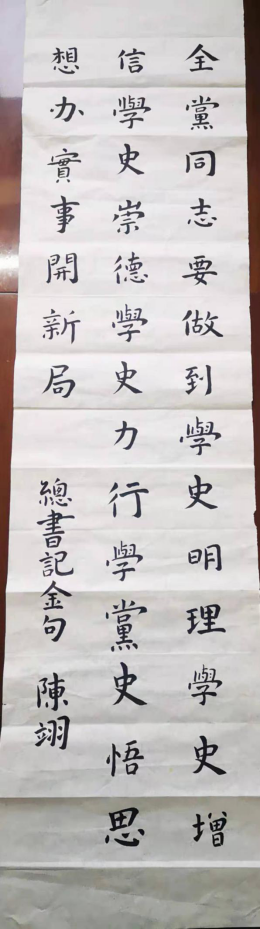 全黨同志要做到學史明理學史增
信學史崇德學史力行學黨史悟思
想办實事開新局
總書記金句 陳翊